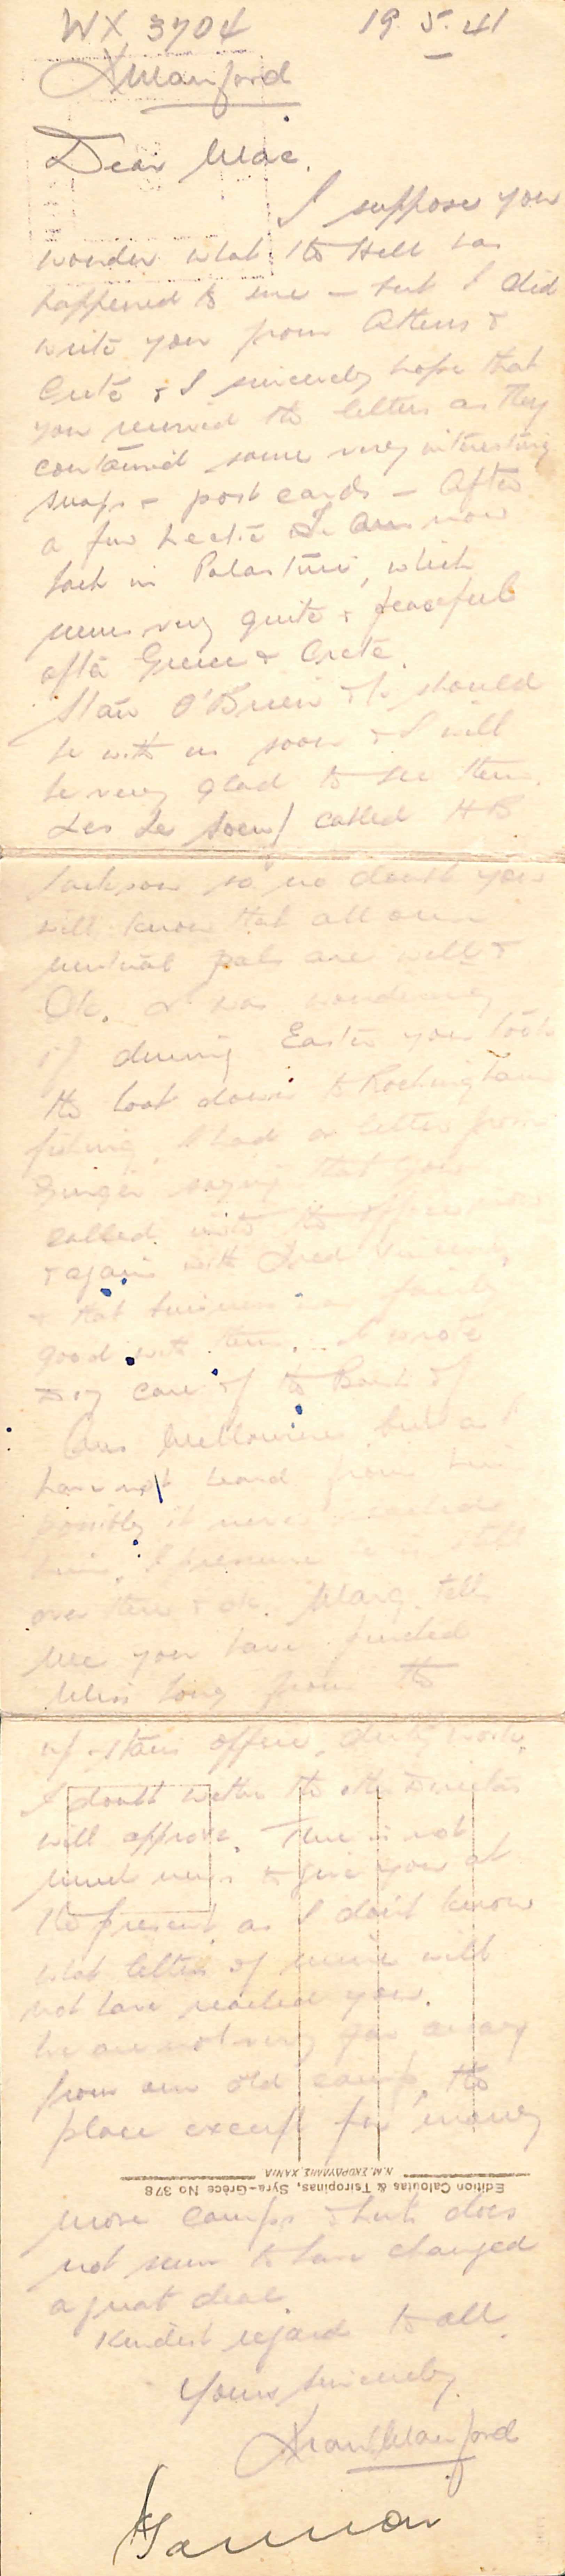 WX 3704 19.5.41
Manford
Dear Mac.
I suppose you
wonder what the Hell has
happened to me – but I did
write you from Athens &
Crete & I sincerely hope that
you received the letters as they
contained some very interesting
snaps & post cards – After
a few hectic I am now
back in Palastine, which
seems very quite & peaceful
after Greece & Crete.
Stan O'Brien & Co should
be with us soon & I will
be very glad to see them.
Les Le called HB
Jackson so no doubt you
will know that all our
mutual pals are well &
Ok. I was wondering
if during Easter you took
the boat down to Rockingham
fishing, I had a letter from
Ginger saying that you
called into the office now
& again with Fred
& that business was fairly
good with them. I wrote
care of the Bank of
Aus Melbourne but as I
have not heard from him
possibly it never reached
him, I presume he is still
over there & ok. Marg tells
me you have pinched
Miss Long from the
up-stairs office, dirty work,
I doubt wether the other Directors
will approve. There is not
much news to give you at
the present as I don't know
what letters of mine will
not have reached you.
We are not very far away
from our old camp, the
place except for many
N.M. ΣΚΟΡΔΥΛΛΗΣ ΧΑΝΙΑ
Edition Caloutas & Tsiropinas, Syra-Grèce No 378
more camps & huts does
not seem to have changed
a great deal.
Kindest regard to all.
Yours Sincerely
Manford